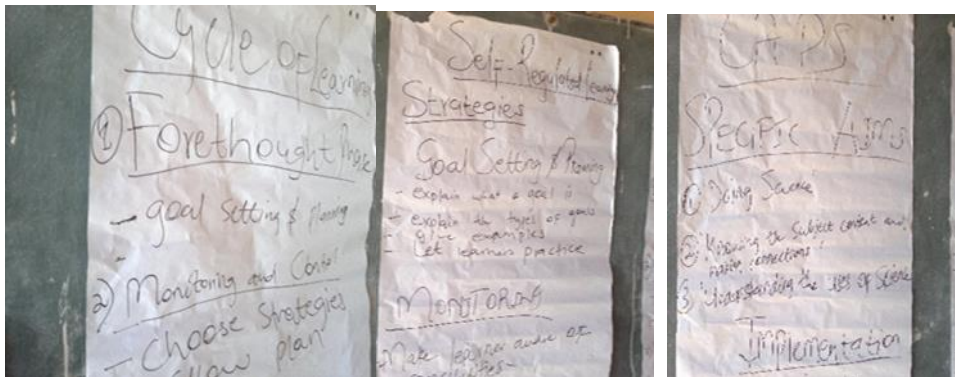 Cycle of Learning
① Forethought Phase
- goal setting & planning
2) Monitoring and Control
- Choose Strategies
plan
Self-Regulated Learning
Strategies
Goal Setting & Planning
- explain what a goal is
- explain the types of goals
- Give examples
- Let learners practice
MONITORING
- Make learner aware of
CAPS
SPECIFIC AIMS
① 'Doing Science'
② 'Knowing the subject content and
making connections'
③ 'Understanding the uses of Science'
Implementation